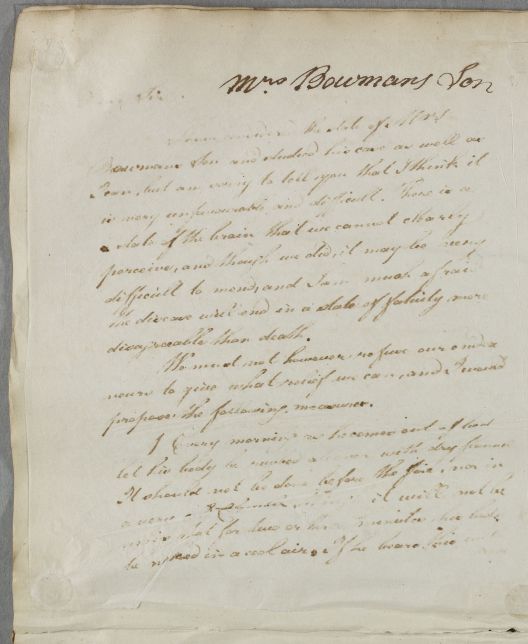 Mrs Bowmans Son
Sir
I have considered the state of Mrs
Bowmans Son and studied his case as well as
I can, but am sorry to tell you that I think it
is very unfavourable and difficult. There is a
state of the brain that we cannot clearly
perceive, and though we did, it may be very
difficult to mend, and I am much afraid
the disease will end in a state of fatuity more
disagreeable than death.
We must not however, refuse our endea
vours to give what relief we can, and I would
propose the following measures.
1 Every morning as he comes out of bed
let his body be rubbed all over with dry flannel
It should not be done before the fire, nor in
a very chamber, it will not be
for two or three minutes, his body
be rubbed in a cool air. If he bears this